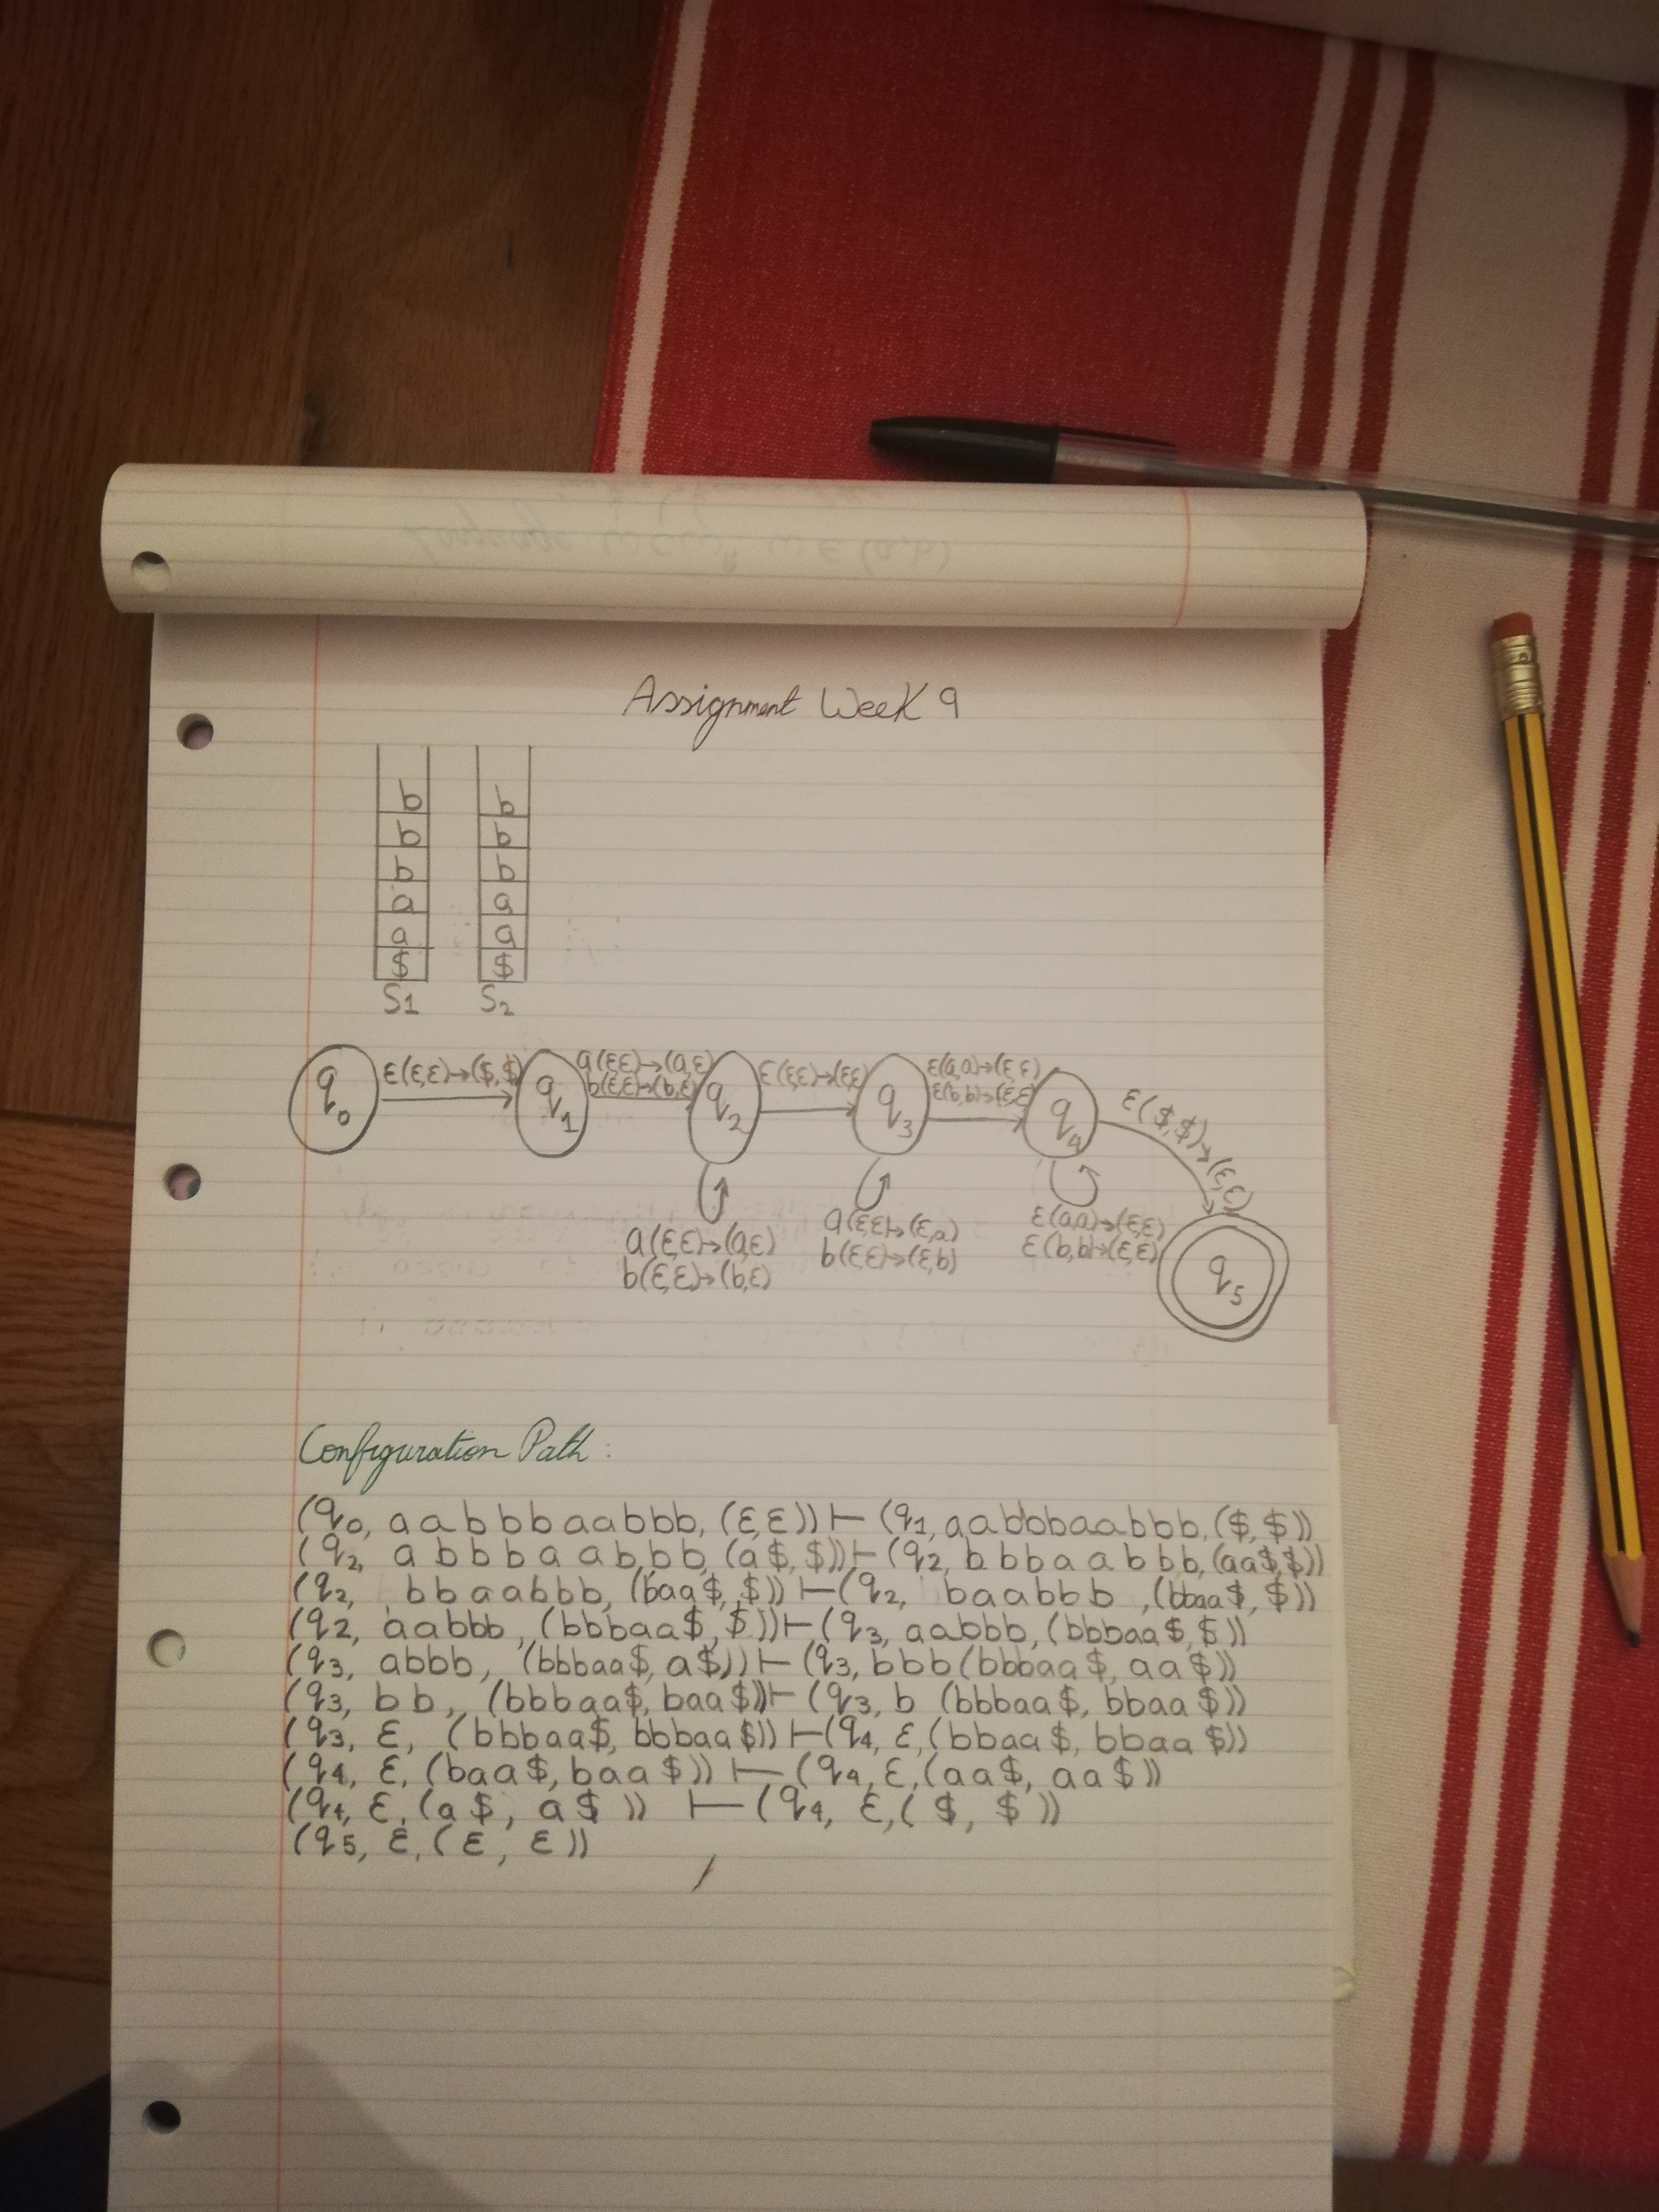 Language wcwᴿ w ∈ (a,b)
Assignment Week 9
b b
b b
b b
a a
a a
$ $
S1 S2
ε(ε,ε)→($,$) a(ε,ε)→(a,ε) ε(ε,ε)→(ε,ε) ε(a,a)→(ε,ε)
b(ε,ε)→(b,ε) ε(b,b)→(ε,ε)
q0 q1 q2 q3 q4 ε($,$)→(ε,ε)
a(ε,ε)→(a,ε) a(ε,ε)→(ε,a) ε(a,a)→(ε,ε)
b(ε,ε)→(b,ε) b(ε,ε)→(ε,b) ε(b,b)→(ε,ε)
q5
Configuration Path:
(q0, aabbbaabbb, (ε,ε)) ⊢ (q1, aabbbaabbb, ($,$))
(q2, abbbaabbb, (a$,$)) ⊢ (q2, bbbaabbb, (aa$,$))
(q2, bbaabbb, (baa$,$)) ⊢ (q2, baabbb, (bbaa$,$))
(q2, aabbb, (bbbaa$,$)) ⊢ (q3, aabbb, (bbbaa$,$))
(q3, abbb, (bbbaa$, a$)) ⊢ (q3, bbb (bbbaa$, aa$))
(q3, bb, (bbbaa$, baa$)) ⊢ (q3, b (bbbaa$, bbaa$))
(q3, ε, (bbbaa$, bbbaa$)) ⊢ (q4, ε, (bbaa$, bbaa$))
(q4, ε, (baa$, baa$)) ⊢ (q4, ε, (aa$, aa$))
(q4, ε, (a$, a$)) ⊢ (q4, ε, ($, $))
(q5, ε, (ε, ε))